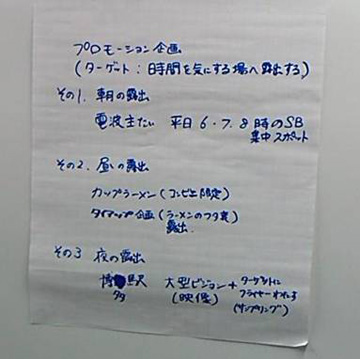 プロモーション企画
(ターゲット:時間を気にする場へ露出する)
その1. 朝の露出
電波主たい 平日6・7.8時のSB
集中スポット
その2. 昼の露出
カップラーメン(コンビニ限定)
タイアップ企画(ラーメンのフタ裏)
露出
その3 夜の露出
博 駅 大型ビジョン+ターゲットに
(映像) フライヤーわたす
(サンプリング)